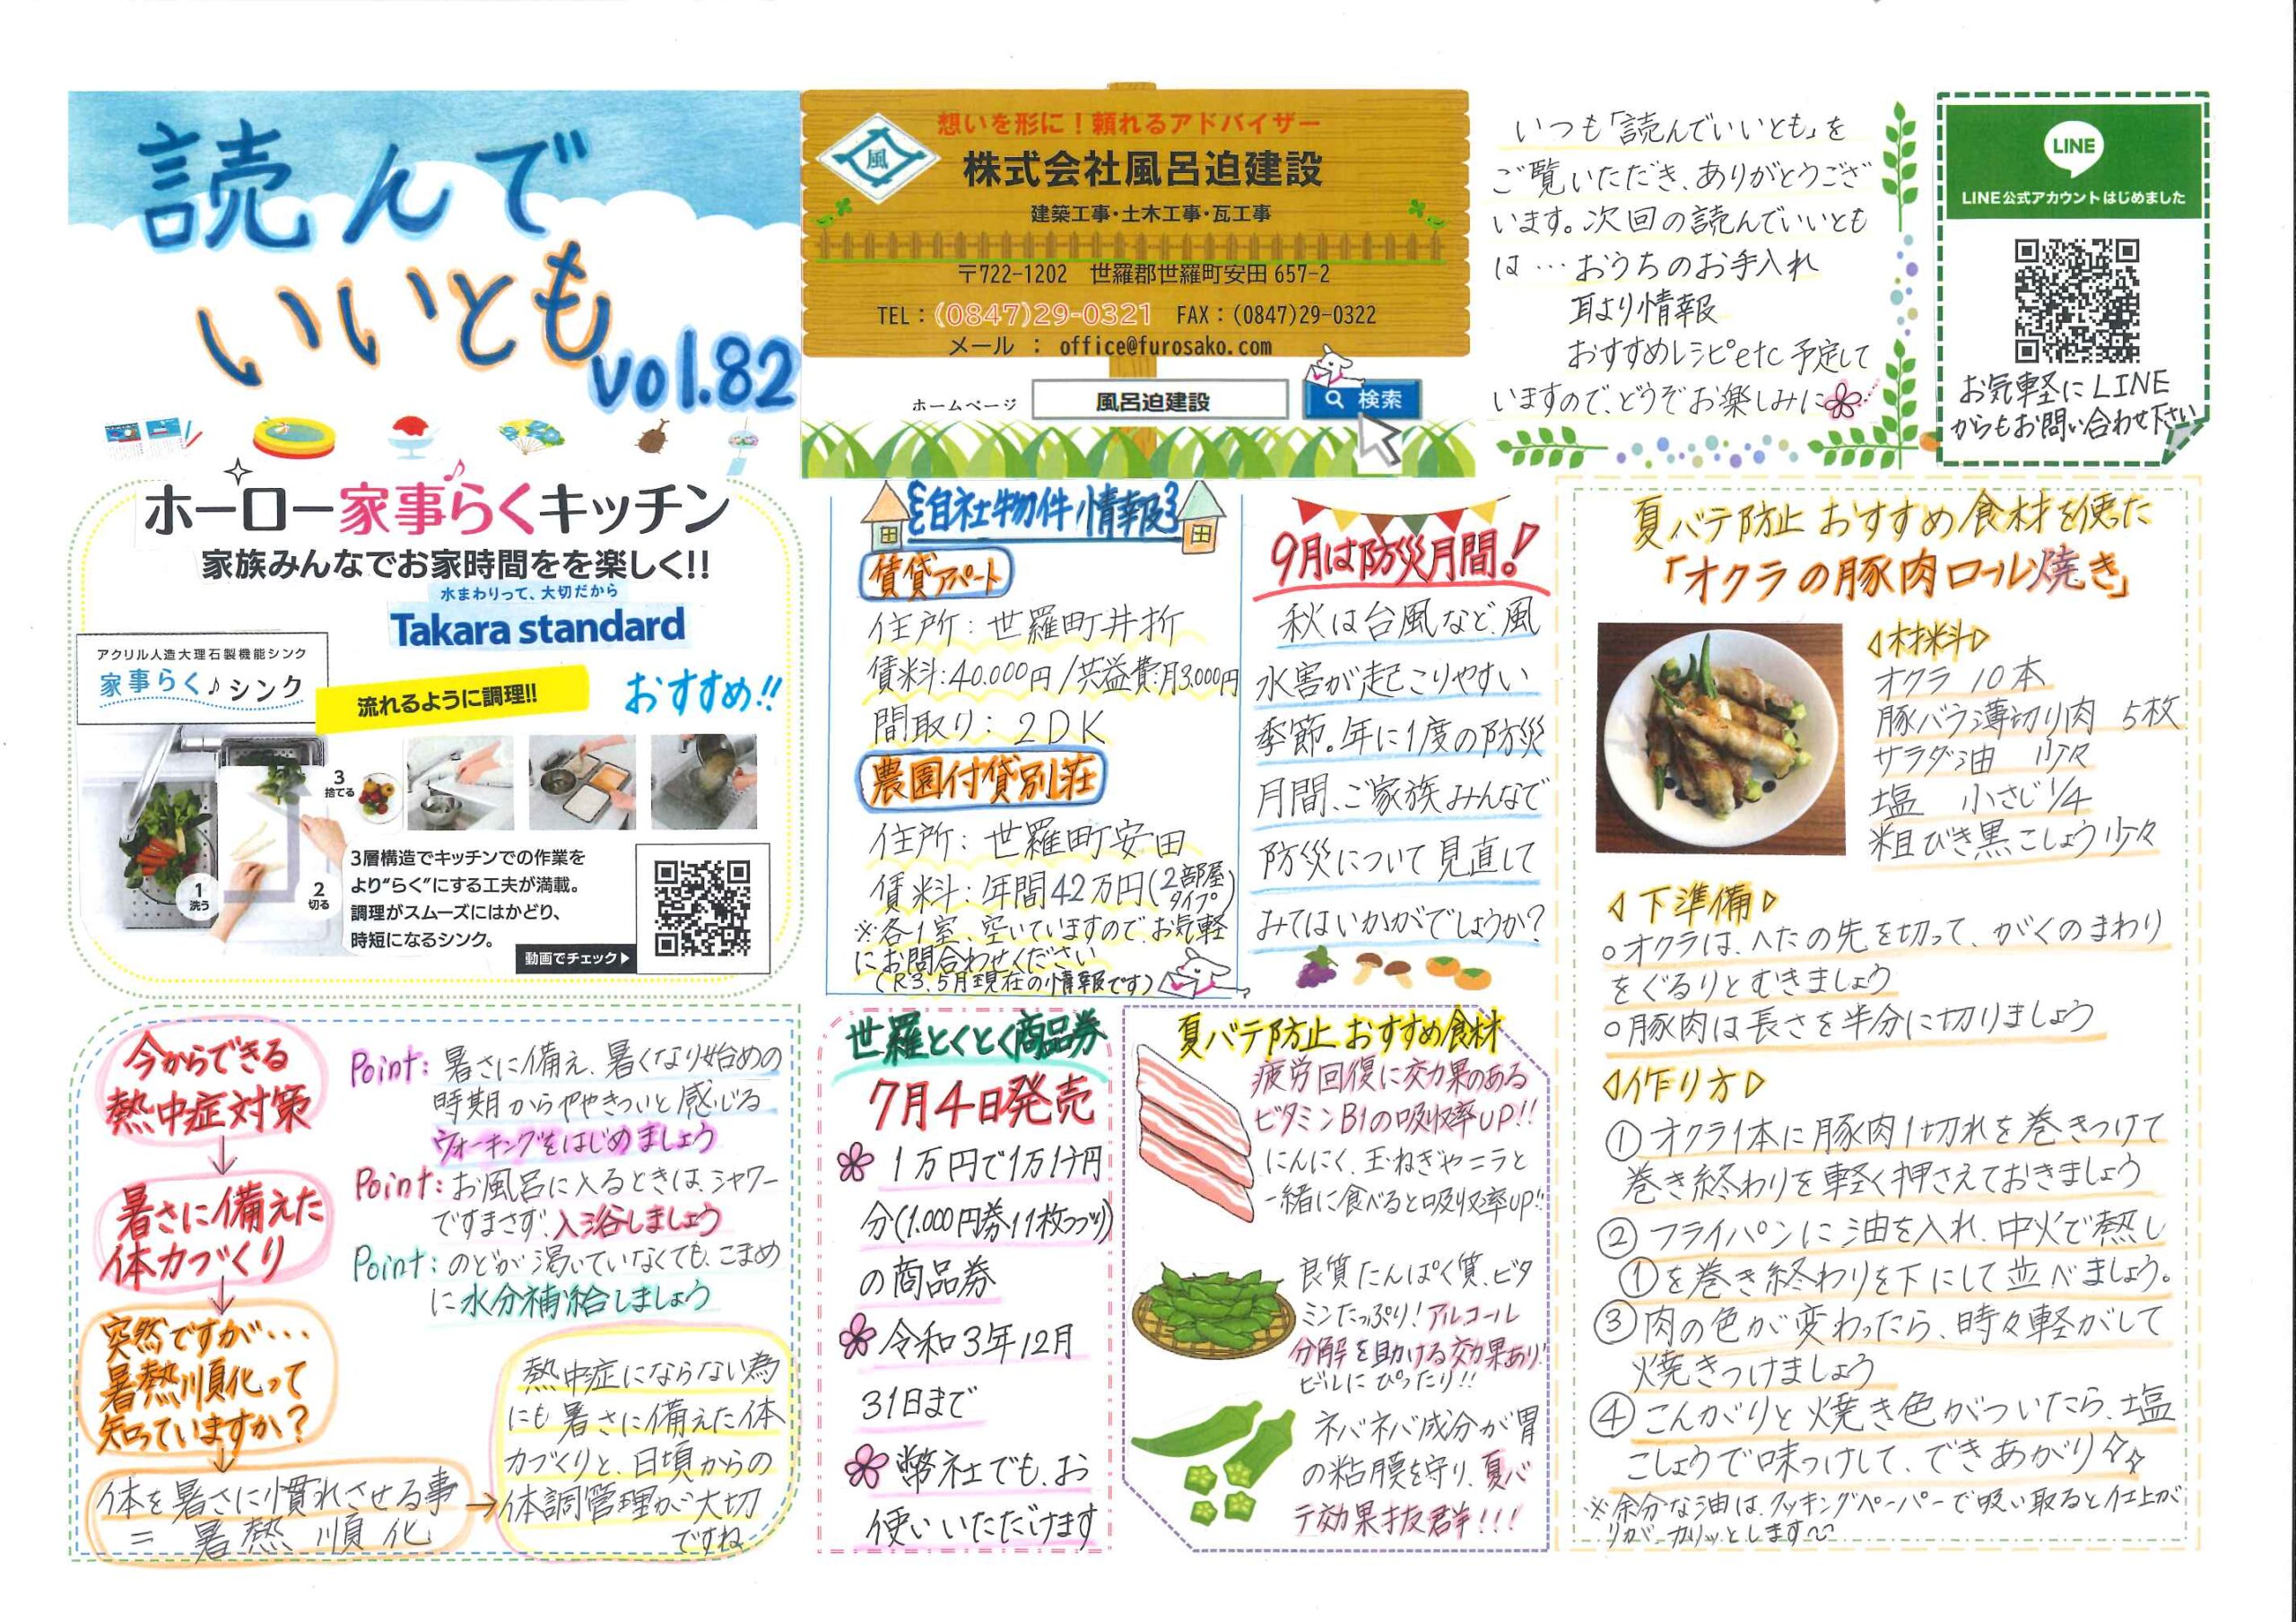 読んで
いいとも
vol.82
想いを形に！頼れるアドバイザー
風
株式会社風呂迫建設
建築工事・土木工事・瓦工事
〒722-1202 世羅郡世羅町安田 657-2
TEL：(0847)29-0321 FAX：(0847)29-0322
メール ： office@furosako.com
ホームページ 風呂迫建設 検索
いつも「読んでいいとも」を
ご覧いただき、ありがとうござ
います。次回の読んでいいとも
は…おうちのお手入れ
耳より情報
おすすめレシピetc 予定して
いますので、どうぞお楽しみに
LINE
LINE公式アカウントはじめました
お気軽にLINE
からもお問い合わせ下さい
ホーロー家事らくキッチン
家族みんなでお家時間をを楽しく!!
水まわりって、大切だから
Takara standard
アクリル人造大理石製機能シンク
家事らく♪シンク
流れるように調理!!
おすすめ!!
3
捨てる
1
洗う
2
切る
3層構造でキッチンでの作業を
より"らく"にする工夫が満載。
調理がスムーズにはかどり、
時短になるシンク。
動画でチェック▶
自社物件情報
賃貸アパート
住所：世羅町井折
賃料：40.000円/共益費：月3,000円
間取り：2DK
農園付貸別荘
住所：世羅町安田
賃料：年間42万円(2部屋タイプ)
※各1室、空いていますので、お気軽
にお問合わせください
(R3.5月現在の情報です)
9月は防災月間!
秋は台風など、風
水害が起こりやすい
季節。年に1度の防災
月間、ご家族みんなで
防災について見直して
みてはいかがでしょうか?
夏バテ防止 おすすめ食材を使った
「オクラの豚肉ロール焼き」
◁材料▷
オクラ 10本
豚バラ薄切り肉 5枚
サラダ油 少々
塩 小さじ1/4
粗びき黒こしょう少々
◁下準備▷
○オクラは、へたの先を切って、がくのまわり
をぐるりとむきましょう
○豚肉は長さを半分に切りましょう
◁作り方▷
①オクラ1本に豚肉1切れを巻きつけて
巻き終わりを軽く押さえておきましょう
②フライパンに油を入れ、中火で熱し
①を巻き終わりを下にして並べましょう。
③肉の色が変わったら、時々転がして
焼きつけましょう
④こんがりと焼き色がついたら、塩
こしょうで味つけして、できあがり☆☆
※余分な油は、クッキングペーパーで吸い取ると仕上が
りが、カリッとします
今からできる
熱中症対策
↓
暑さに備えた
体力づくり
↓
突然ですが…
暑熱順化って
知っていますか?
↓
体を暑さに慣れさせる事
＝ 暑熱順化
Point：暑さに備え、暑くなり始めの
時期からややきついと感じる
ウォーキングをはじめましょう
Point：お風呂に入るときは、シャワー
ですまさず、入浴しましょう
Point：のどが渇いていなくても、こまめ
に水分補給しましょう
→
熱中症にならない為
にも暑さに備えた体
力づくりと、日頃からの
体調管理が大切
ですね
世羅とくとく商品券
7月4日発売
1万円で1万1千円
分(1.000円券11枚つづり)
の商品券
令和3年12月
31日まで
幣社でも、お
使いいただけます
夏バテ防止 おすすめ食材
疲労回復に効果のある
ビタミンB1の吸収率UP!!
にんにく、玉ねぎやニラと
一緒に食べると吸収率UP!!
良質たんぱく質、ビタ
ミンたっぷり！アルコール
分解を助ける効果あり!
ビールにぴったり!!
ネバネバ成分が胃
の粘膜を守り、夏バ
テ効果抜群!!!